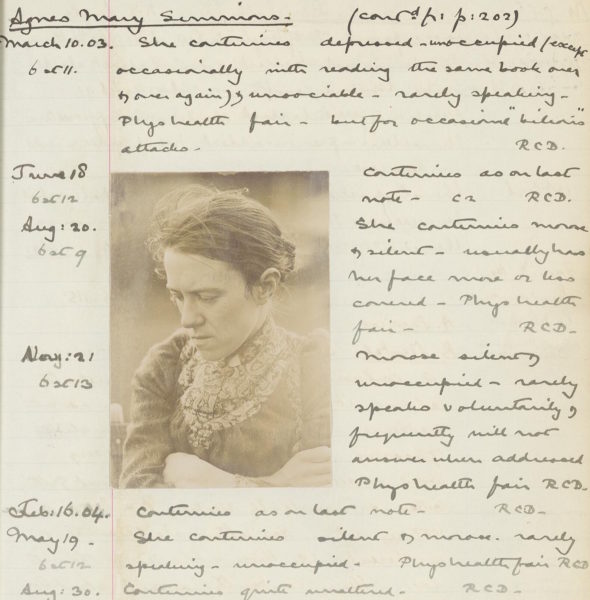 Agnes Mary Simmons. (contd fr: p: 202)
March 10. 03. She continues depressed - unoccupied (except
6 st 11. occasionally with reading the same book over
& over again) & unsociable - rarely speaking -
Phys health fair - but for occasional "bilious"
attacks - RCD.
June 18 Continues as on last
6 st 12 note - RCD.
Aug: 20. She continues morose
6 st 9 & silent - usually has
her face more or less
covered - Phys health
fair - RCD -
Nov: 21 Morose silent &
6 st 13 unoccupied - rarely
speaks voluntarily &
frequently will not
answer when addressed
Phys health fair RCD.
Feb: 16. 04. Continues as on last note - RCD -
May 19 - She continues silent & morose. rarely
6 st 12 speaking - unoccupied - Phys health fair RCD
Aug: 30. Continues quite unaltered. - RCD -